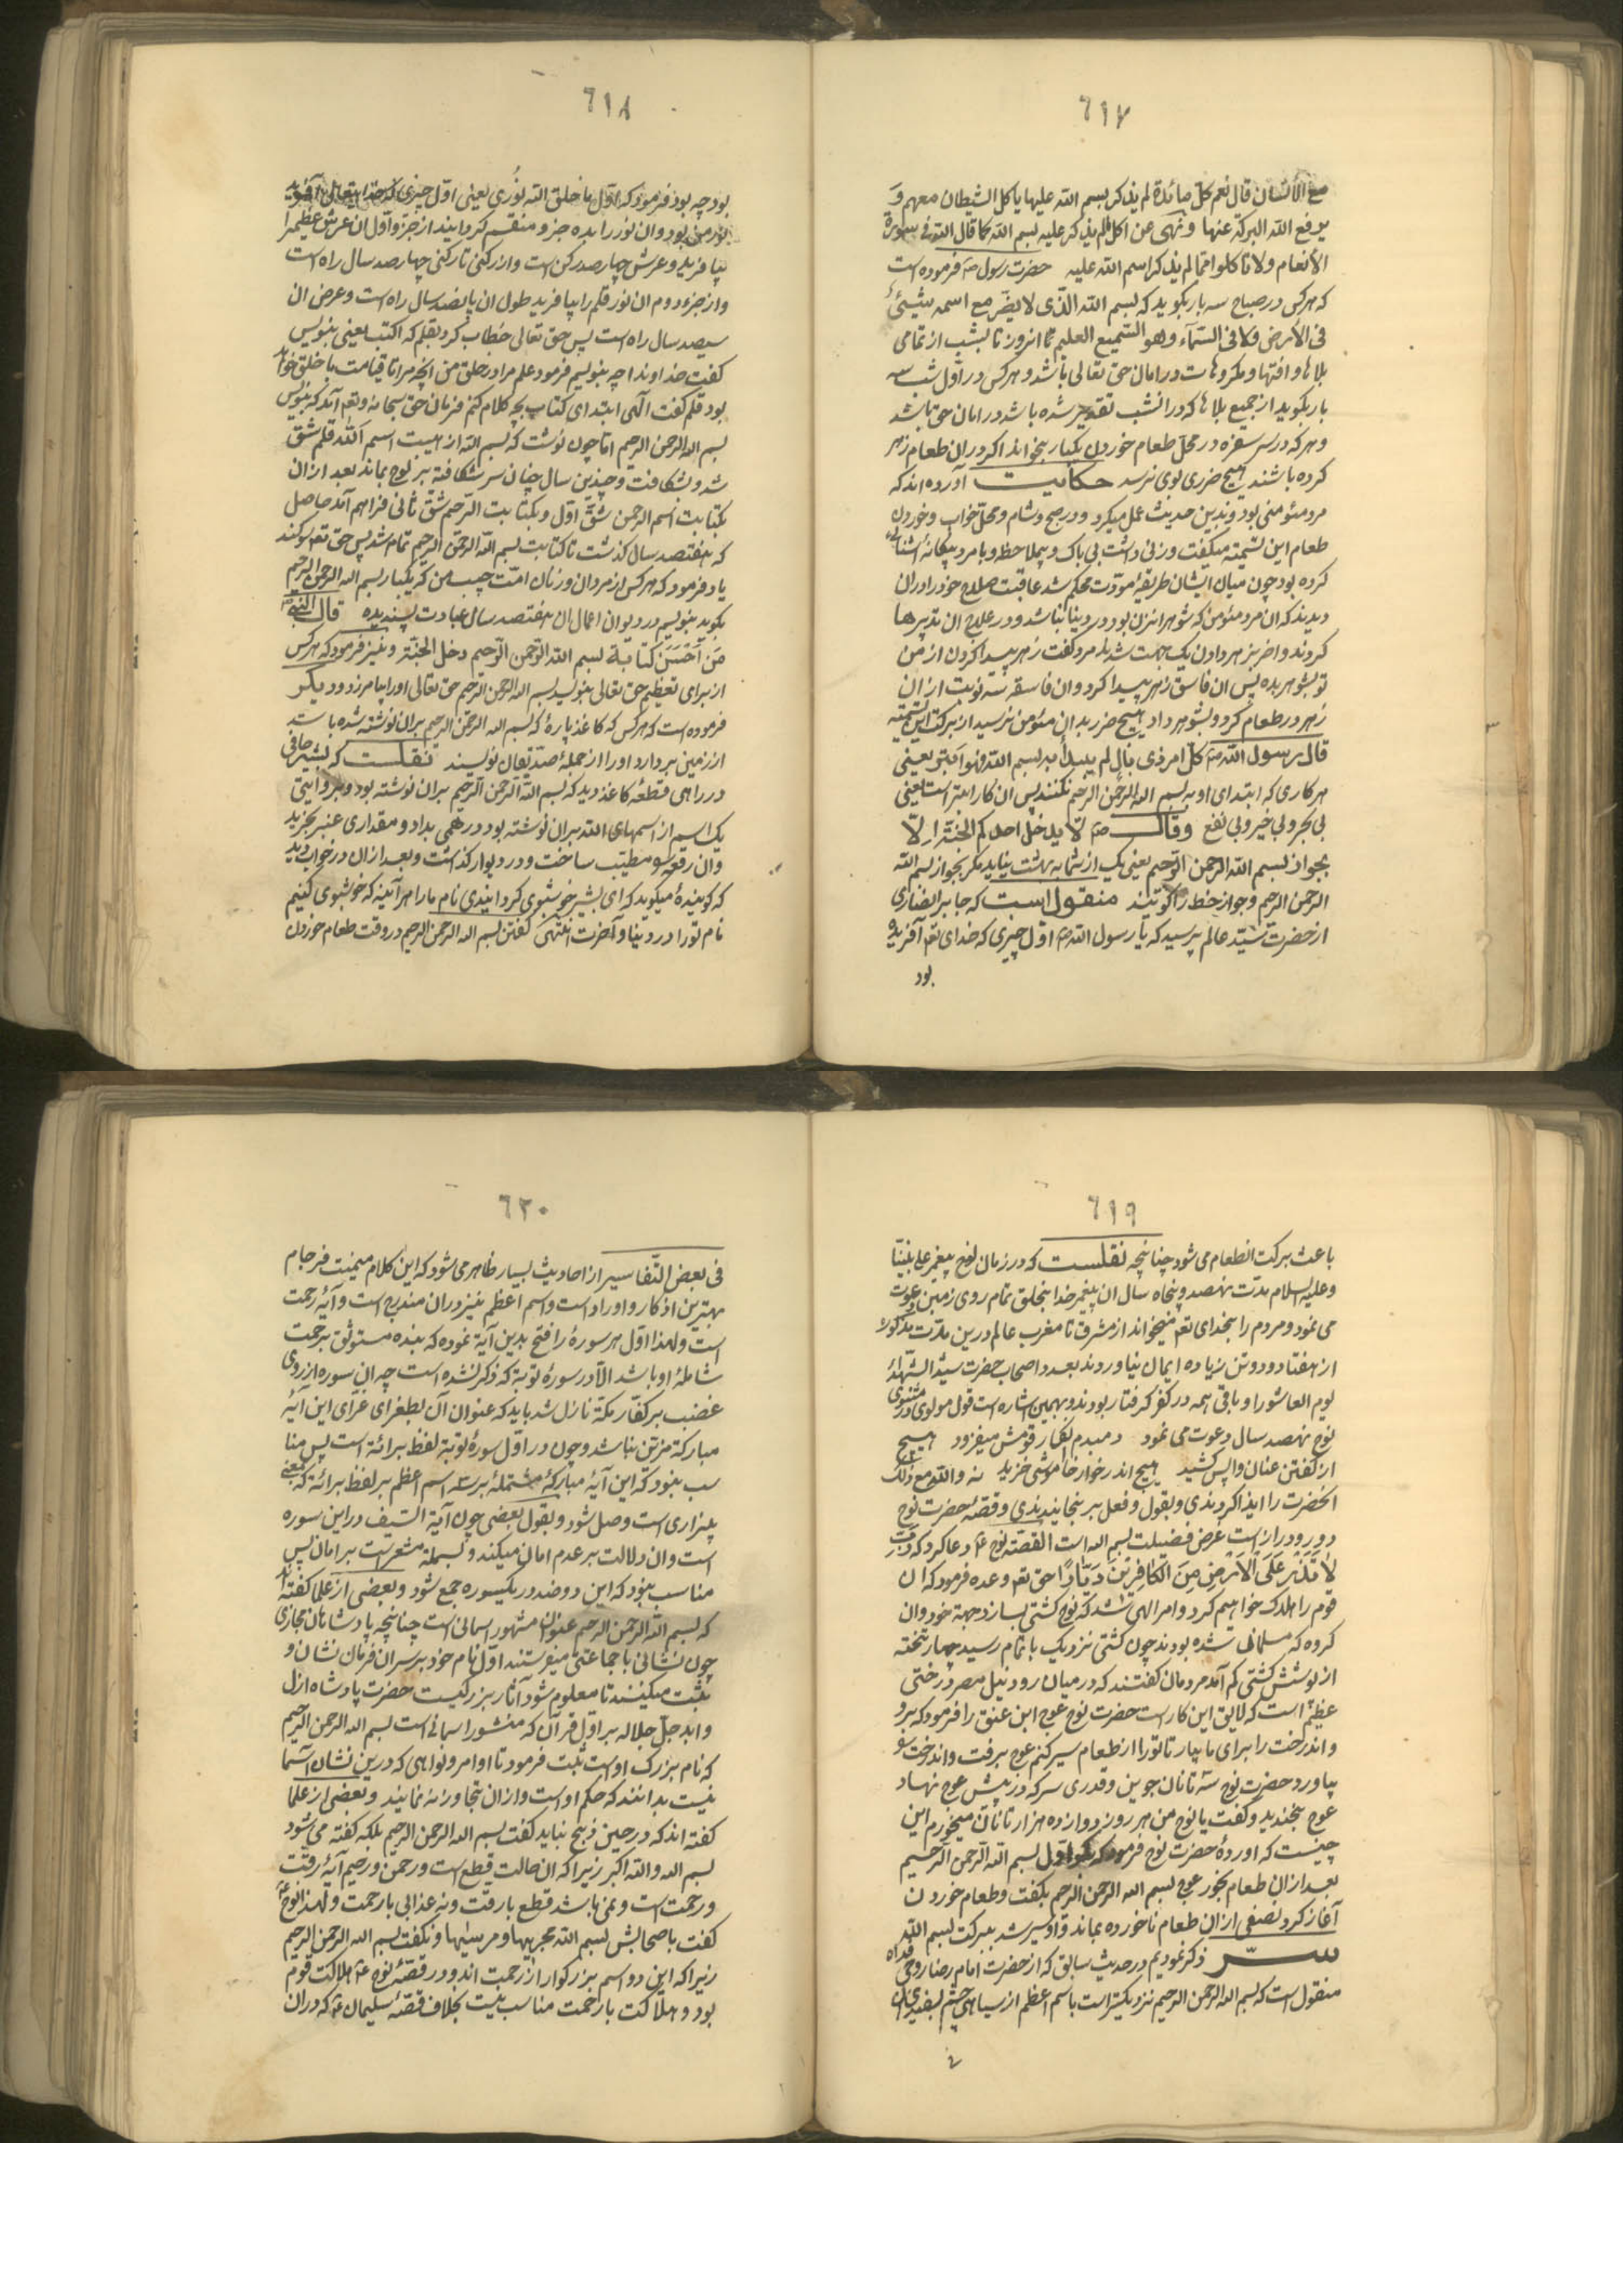 ٦١٧
مع الأنسان قال نعم كل مائدة لم يذكر بسم الله عليها ياكل الشيطان معهم و
يرفع الله البركة عنها و نهى عن اكل مالم يذكر عليه بسم الله كما قال الله فى سورة
الانعام ولا تاكلوا مما لم يذكر اسم الله عليه حضرت رسول ص فرموده است
كه هركس در صباح سه بار بكويد كه بسم الله الذى لا يضر مع اسمه شيئ
فى الأرض ولا فى السمآء وهو السميع العليم تا انروز تا بشب از تمامى
بلاها و افتها و مكروهات در امان حق تعالى باشد و هركس در اول شب سه
بار بكويد از جميع بلاها كه در انشب تقدير شده باشد در امان حق باشد
و هركه در سر سفره در محل طعام خوردن يكبار بخواند اكر در ان طعام زهر
كرده باشند هيچ ضررى بوى نرسد حكايت آورده اند كه
مرد مئومنى بود و بدين حديث عمل ميكرد و در صبح و شام و محل خواب و خوردن
طعام اين تسميه ميكفت و زنى داشت بى باك و بيملاحظه و با مرد بيكانه اشنائى
كرده بود چون ميان ايشان طريقه مودت محكم شد عاقبت صلاح خود را در ان
ديدند كه ان مرد مئومن كه شوهر انزن بود در دنيا نباشد و در علاج ان تدبيرها
كردند و اخر بزهر دادن يك جهت شدند مرد كفت زهر پيدا كردن از من
تو بشوهر بده پس ان فاسق زهر پيدا كرد و ان فاسقه سه نوبت از ان
زهر در طعام كرد و بشوهر داد هيچ ضرر بدان مئومن نرسيد از بركت اين تسميه
قال رسول الله ص كل امر ذى بال لم يبدأ به بسم الله فهو ابتر يعنى
هر كارى كه ابتداى او به بسم الله الرحمن الرحيم نكنند پس ان كار ابتر است يعنى
بى بجر و بى خير و بى نفع وقال ص لا يدخل احدكم الجنة الا
بجواز بسم الله الرحمن الرحيم يعنى يك از شما به بهشت نيايد مكر بجواز بسم الله
الرحمن الرحيم و جواز خط را كويند منقول است كه جابر انصارى
از حضرت سيد عالم پرسيد كه يا رسول الله ص اول چيزى كه خداى تعم آفريده
بود
٦١٨
بود چه بود فرمود كه اول ما خلق الله نورى يعنى اول چيزى كه خدايتعالى آفريد
نور من بود و ان نور را بده جز و منقسم كردانيد از جزو اول ان عرش عظيم را
بيافريد و عرش چهار صد ركن است و از ركنى تا ركنى چهار صد سال راه است
و از جزء دوم ان نور قلم را بيافريد طول ان پانصد سال راه است و عرض ان
سيصد سال راه است پس حق تعالى خطاب كرد بقلم كه اكتب يعنى بنويس
كفت خداوندا چه بنويسم فرمود علم مرا در خلق من انچه مرا تا قيامت با خلق خواهد
بود قلم كفت الهى ابتداى كتاب بچه كلام كنم فرمان حق سبحانه و تعم آمد كه بنويس
بسم الله الرحمن الرحيم اما چون نوشت كه بسم الله از هيبت اسم الله قلم شق
شد و شكافت و چندين سال چنان سر شكافته بر لوح بماند بعد از ان
بكتابت اسم الرحمن شق اول و بكتابت الرحيم شق ثانى فراهم آمد حاصل
كه هفتصد سال كذشت تا كتابت بسم الله الرحمن الرحيم تمام شد پس حق تعم سوكند
ياد فرمود كه هركس از مردان و زنان امت حبيب من كه يكبار بسم الله الرحمن الرحيم
بكويد بنويسم در ديوان اعمال ان هفتصد سال عبادت پسنديده قال النبى ص
من احسن كتابة بسم الله الرحمن الرحيم دخل الجنة و نيز فرمود كه هركس
از براى تعظيم حق تعالى بنويسد بسم الله الرحمن الرحيم حق تعالى او را بيامرزد و ديكر
فرموده است كه هركس كه كاغذ پاره كه بسم الله الرحمن الرحيم بران نوشته شده باشد
از زمين بردارد او را از جمله صديقان نويسند نقلست كه بشر حافى
در راهى قطعه كاغذ ديد كه بسم الله الرحمن الرحيم بران نوشته بود و بروايتى
يك اسم از اسمهاى الله بران نوشته بود درهمى بداد و مقدارى عنبر بخريد
و ان رقعه را مطيب ساخت و در ديوار كذاشت و بعد از ان در خواب ديد
كه كوينده ميكويد كه اى بشر خوشبوى كردانيدى نام ما را هر آينه كه خوشبوى كنيم
نام تو را در دنيا و آخرت انتهى كفتن بسم الله الرحمن الرحيم در وقت طعام خوردن
٦١٩
باعث بركت انطعام مى شود چنانچه نقلست كه در زمان نوح پيغمبر على نبينا
و عليه السلام مدت نهصد و پنجاه سال ان پيغمبر خدا بخلق تمام روى زمين دعوت
مى نمود و مردم را بخداى تعم ميخواند از مشرق تا مغرب عالم در ين مدت مذكوره
از هفتاد و دو تن زياده ايمان نياوردند بعدد اصحاب حضرت سيد الشهداء
يوم العاشورا و باقى همه در كفر كرفتار بودند و بهمين اشاره است قول مولوى در مثنوى
نوح نهصد سال دعوت مى نمود دمبدم انكار قومش ميفزود هيچ
از كفتن عنان واپس كشيد هيچ اندر غار خاموشى خزيد نه والله مع ذلك
انحضرت را ايذا كردندى و بقول و فعل برنجانيدندى و قصه حضرت نوح
دور و دراز است غرض فضيلت بسم الله است القصه نوح ع دعا كرد كه رب
لا تذر على الأرض من الكافرين ديارا حق تعم وعده فرمود كه ان
قوم را هلاك خواهيم كرد و امر الهى شد كه نوح كشتى بسازد جهة خود و ان
كروه كه مسلمان شده بودند چون كشتى نزديك باتمام رسيد چهار تخته
از پوشش كشتى كم آمد مردمان كفتند كه در ميان رود نيل مصر درختى
عظيم است كه لايق اين كار است حضرت نوح عوج ابن عنق را فرمود كه برو
و اندرخت را براى ما بيار تا تو را از طعام سير كنم عوج برفت و اندرخت
بياورد حضرت نوح سه تا نان جوين و قدرى سركه در پيش عوج نهاد
عوج بخنديد و كفت يا نوح من هر روز دوازده هزار تا نان ميخورم اين
چيست كه اوردهٔ حضرت نوح فرمود كه بكو اول بسم الله الرحمن الرحيم
بعد از ان طعام بخور عوج بسم الله الرحمن الرحيم بكفت و طعام خوردن
آغاز كرد نصفى از ان طعام ناخورده بماند و او سير شد ببركت بسم الله
سر ذكر نموديم در حديث سابق كه از حضرت امام رضا روحى فداه
منقول است كه بسم الله الرحمن الرحيم نزديكتر است باسم اعظم از سياهى چشم بسفيدى ان
٦٢٠
فى بعض التفاسير از احاديث بسيار ظاهر مى شود كه اين كلام ميمنت فرجام
بهترين اذكار و اوراد است و اسم اعظم نيز در ان مندرج است و آيه رحمت
است و لهذا اول هر سوره را فتح بدين آية نموده كه بنده مستوثق برحمت
شامله او باشد الا در سوره توبة كه ذكر نشده است چه ان سوره از روى
غضب بر كفار مكة نازل شد بايد كه عنوان آن بطغراى غراى اين آيه
مباركه مزين نباشد و چون در اول سوره توبة لفظ برائة است پس منا
سب نبود كه اين آيه مباركه مشتمله بر سه اسم اعظم بر لفظ برائة كه بمعنى
بيزارى است وصل شود و بقول بعضى چون آية السيف در اين سوره
است و ان دلالت بر عدم امان ميكند و بسملة مشعر است بر امان پس
مناسب نبود كه اين دو ضد در يكسوره جمع شود و بعضى از علما كفته اند
كه بسم الله الرحمن الرحيم عنوان منشور اسمانى است چنانچه پادشاهان مجازى
چون نشانى با جماعتى ميفرستند اول نام خود بر سر ان فرمان نشان و
ثبت ميكنند تا معلوم شود آثار بزركيست حضرت پادشاه ازل
و ابد جل جلاله بر اول قرآن كه منشور اسمانى است بسم الله الرحمن الرحيم
كه نام بزرك اوست ثبت فرمود تا اوامر و نواهى كه در ين نشان
نيست بدانند كه حكم اوست و از ان تجاوز نه نمايند و بعضى از علما
كفته اند كه در حين ذبح نبايد كفت بسم الله الرحمن الرحيم بلكه كفته مى شود
بسم الله و الله اكبر زيرا كه ان حالت قطع است و رحمن و رحيم آيه رقت
و رحمت است و نمى باشد قطع با رقت و نه عذابى با رحمت و لهذا نوح ع
كفت باصحابش بسم الله مجريها و مرسيها و نكفت بسم الله الرحمن الرحيم
زيرا كه اين دو اسم بزركوار از رحمت اند و در قصه نوح ع هلاكت قوم
بود و هلاكت با رحمت مناسب نيست بخلاف قصه سليمان ع كه در ان